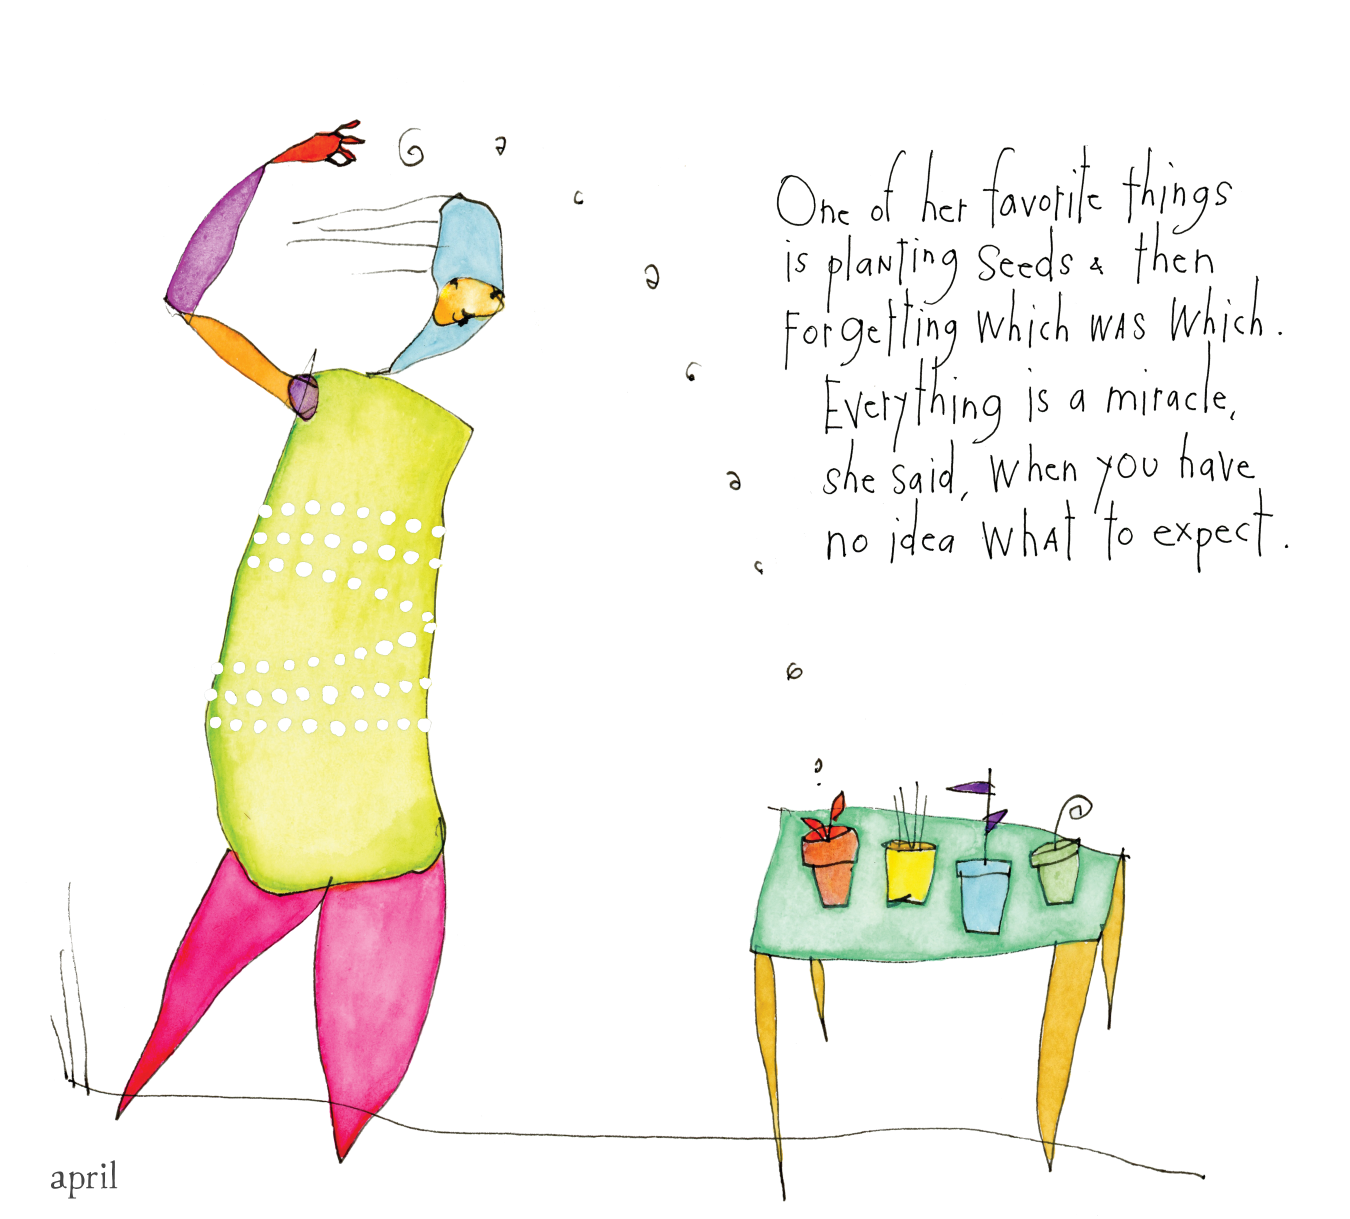 One of her favorite things
is planting seeds & then
forgetting which was which.
Everything is a miracle,
she said, when you have
no idea what to expect.
april